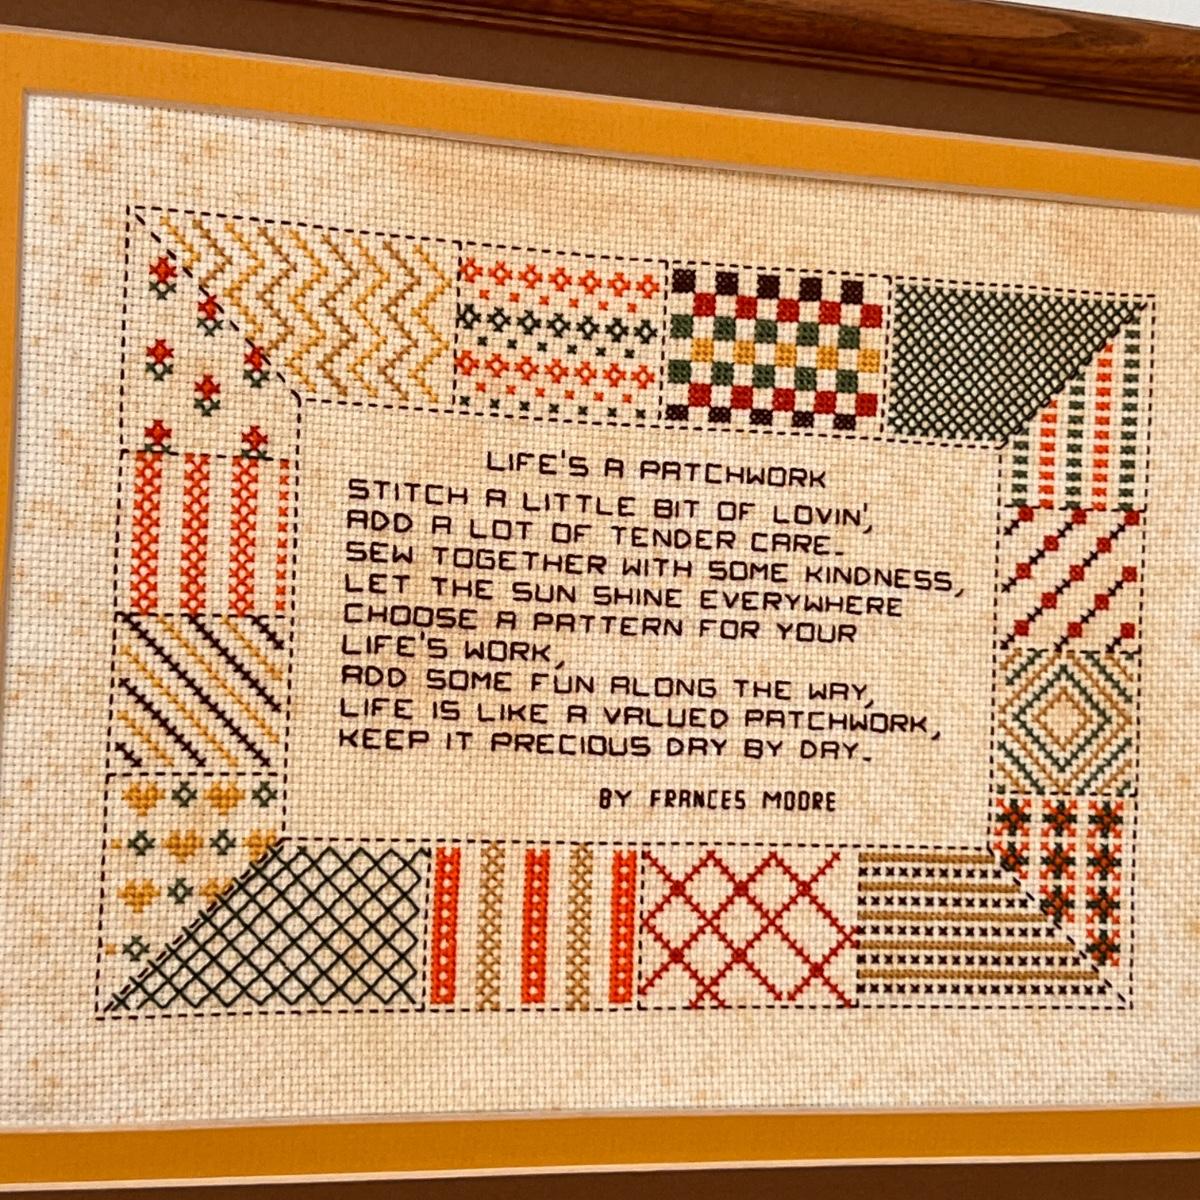 LIFE'S A PATCHWORK
STITCH A LITTLE BIT OF LOVIN',
ADD A LOT OF TENDER CARE.
SEW TOGETHER WITH SOME KINDNESS,
LET THE SUN SHINE EVERYWHERE
CHOOSE A PATTERN FOR YOUR
LIFE'S WORK,
ADD SOME FUN ALONG THE WAY,
LIFE IS LIKE A VALUED PATCHWORK,
KEEP IT PRECIOUS DAY BY DAY.
BY FRANCES MOORE